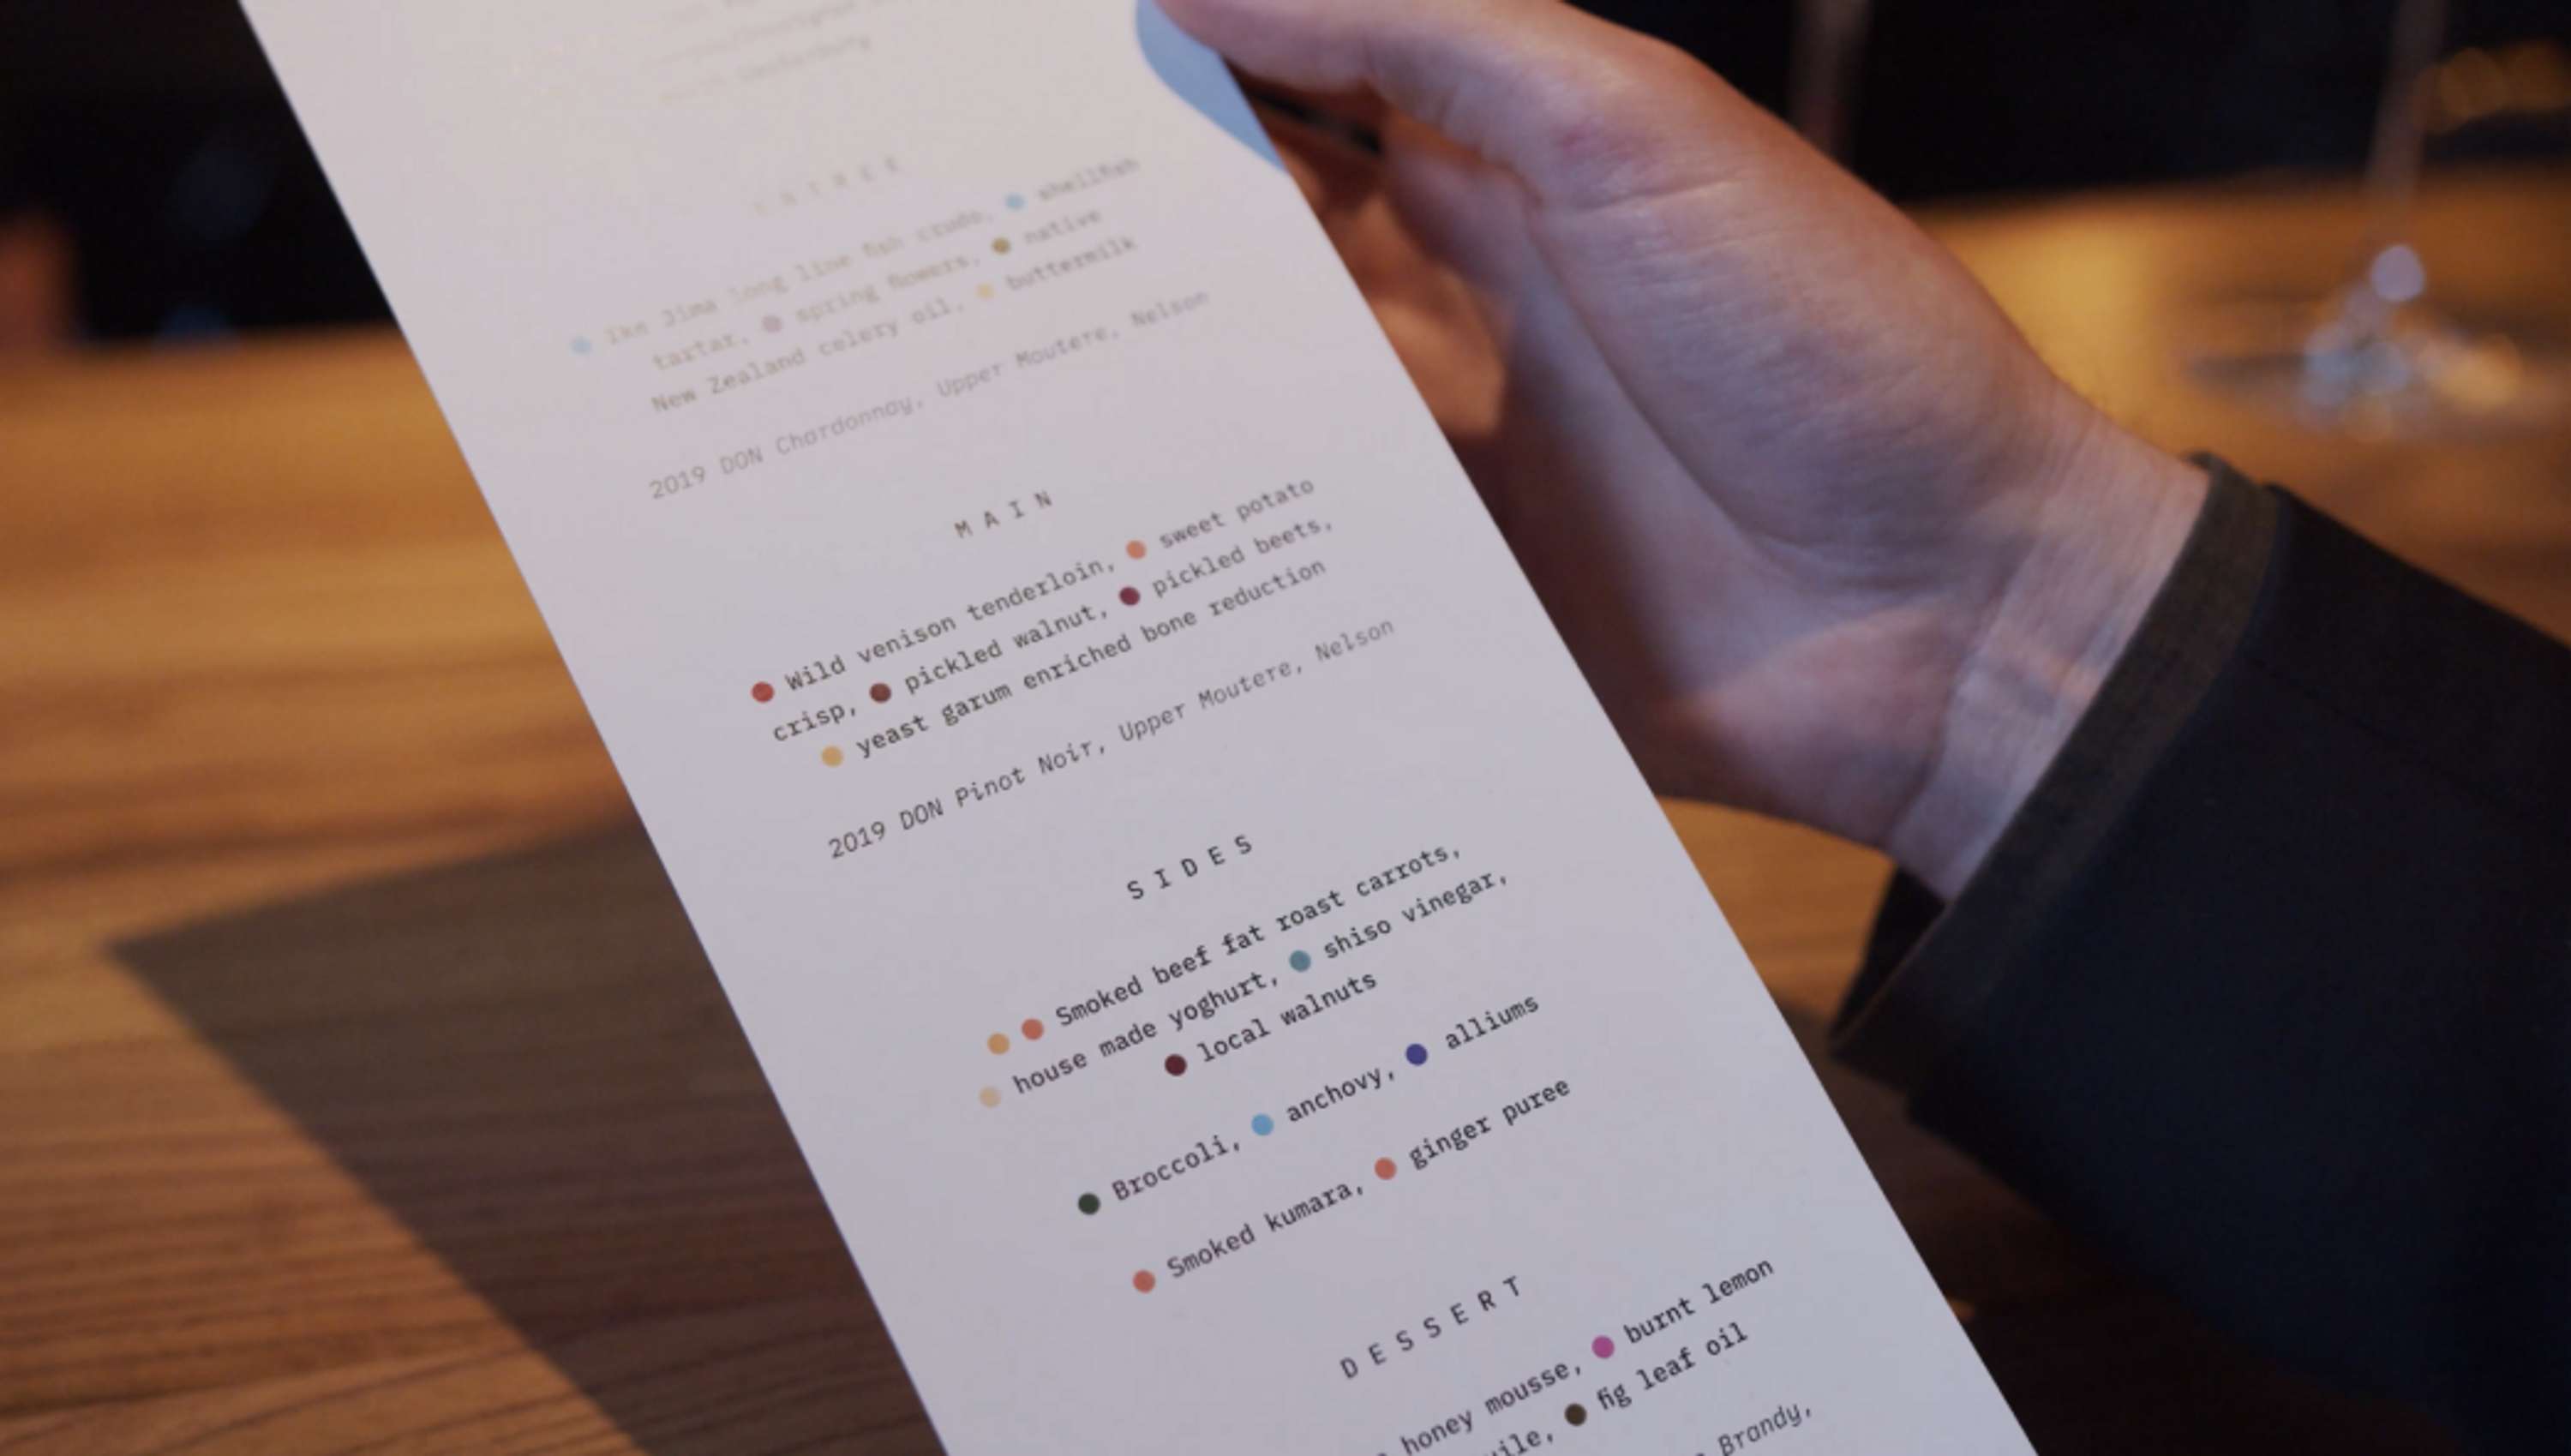 Canterbury
ENTREE
Ike Jima long line fish crudo, shellfish
tartar, spring flowers, native
New Zealand celery oil, buttermilk
2019 DON Chardonnay, Upper Moutere, Nelson
MAIN
Wild venison tenderloin, sweet potato
crisp, pickled walnut, pickled beets,
yeast garum enriched bone reduction
2019 DON Pinot Noir, Upper Moutere, Nelson
SIDES
Smoked beef fat roast carrots,
house made yoghurt, shiso vinegar,
local walnuts
Broccoli, anchovy, alliums
Smoked kumara, ginger puree
DESSERT
honey mousse, burnt lemon
fig leaf oil
Brandy,